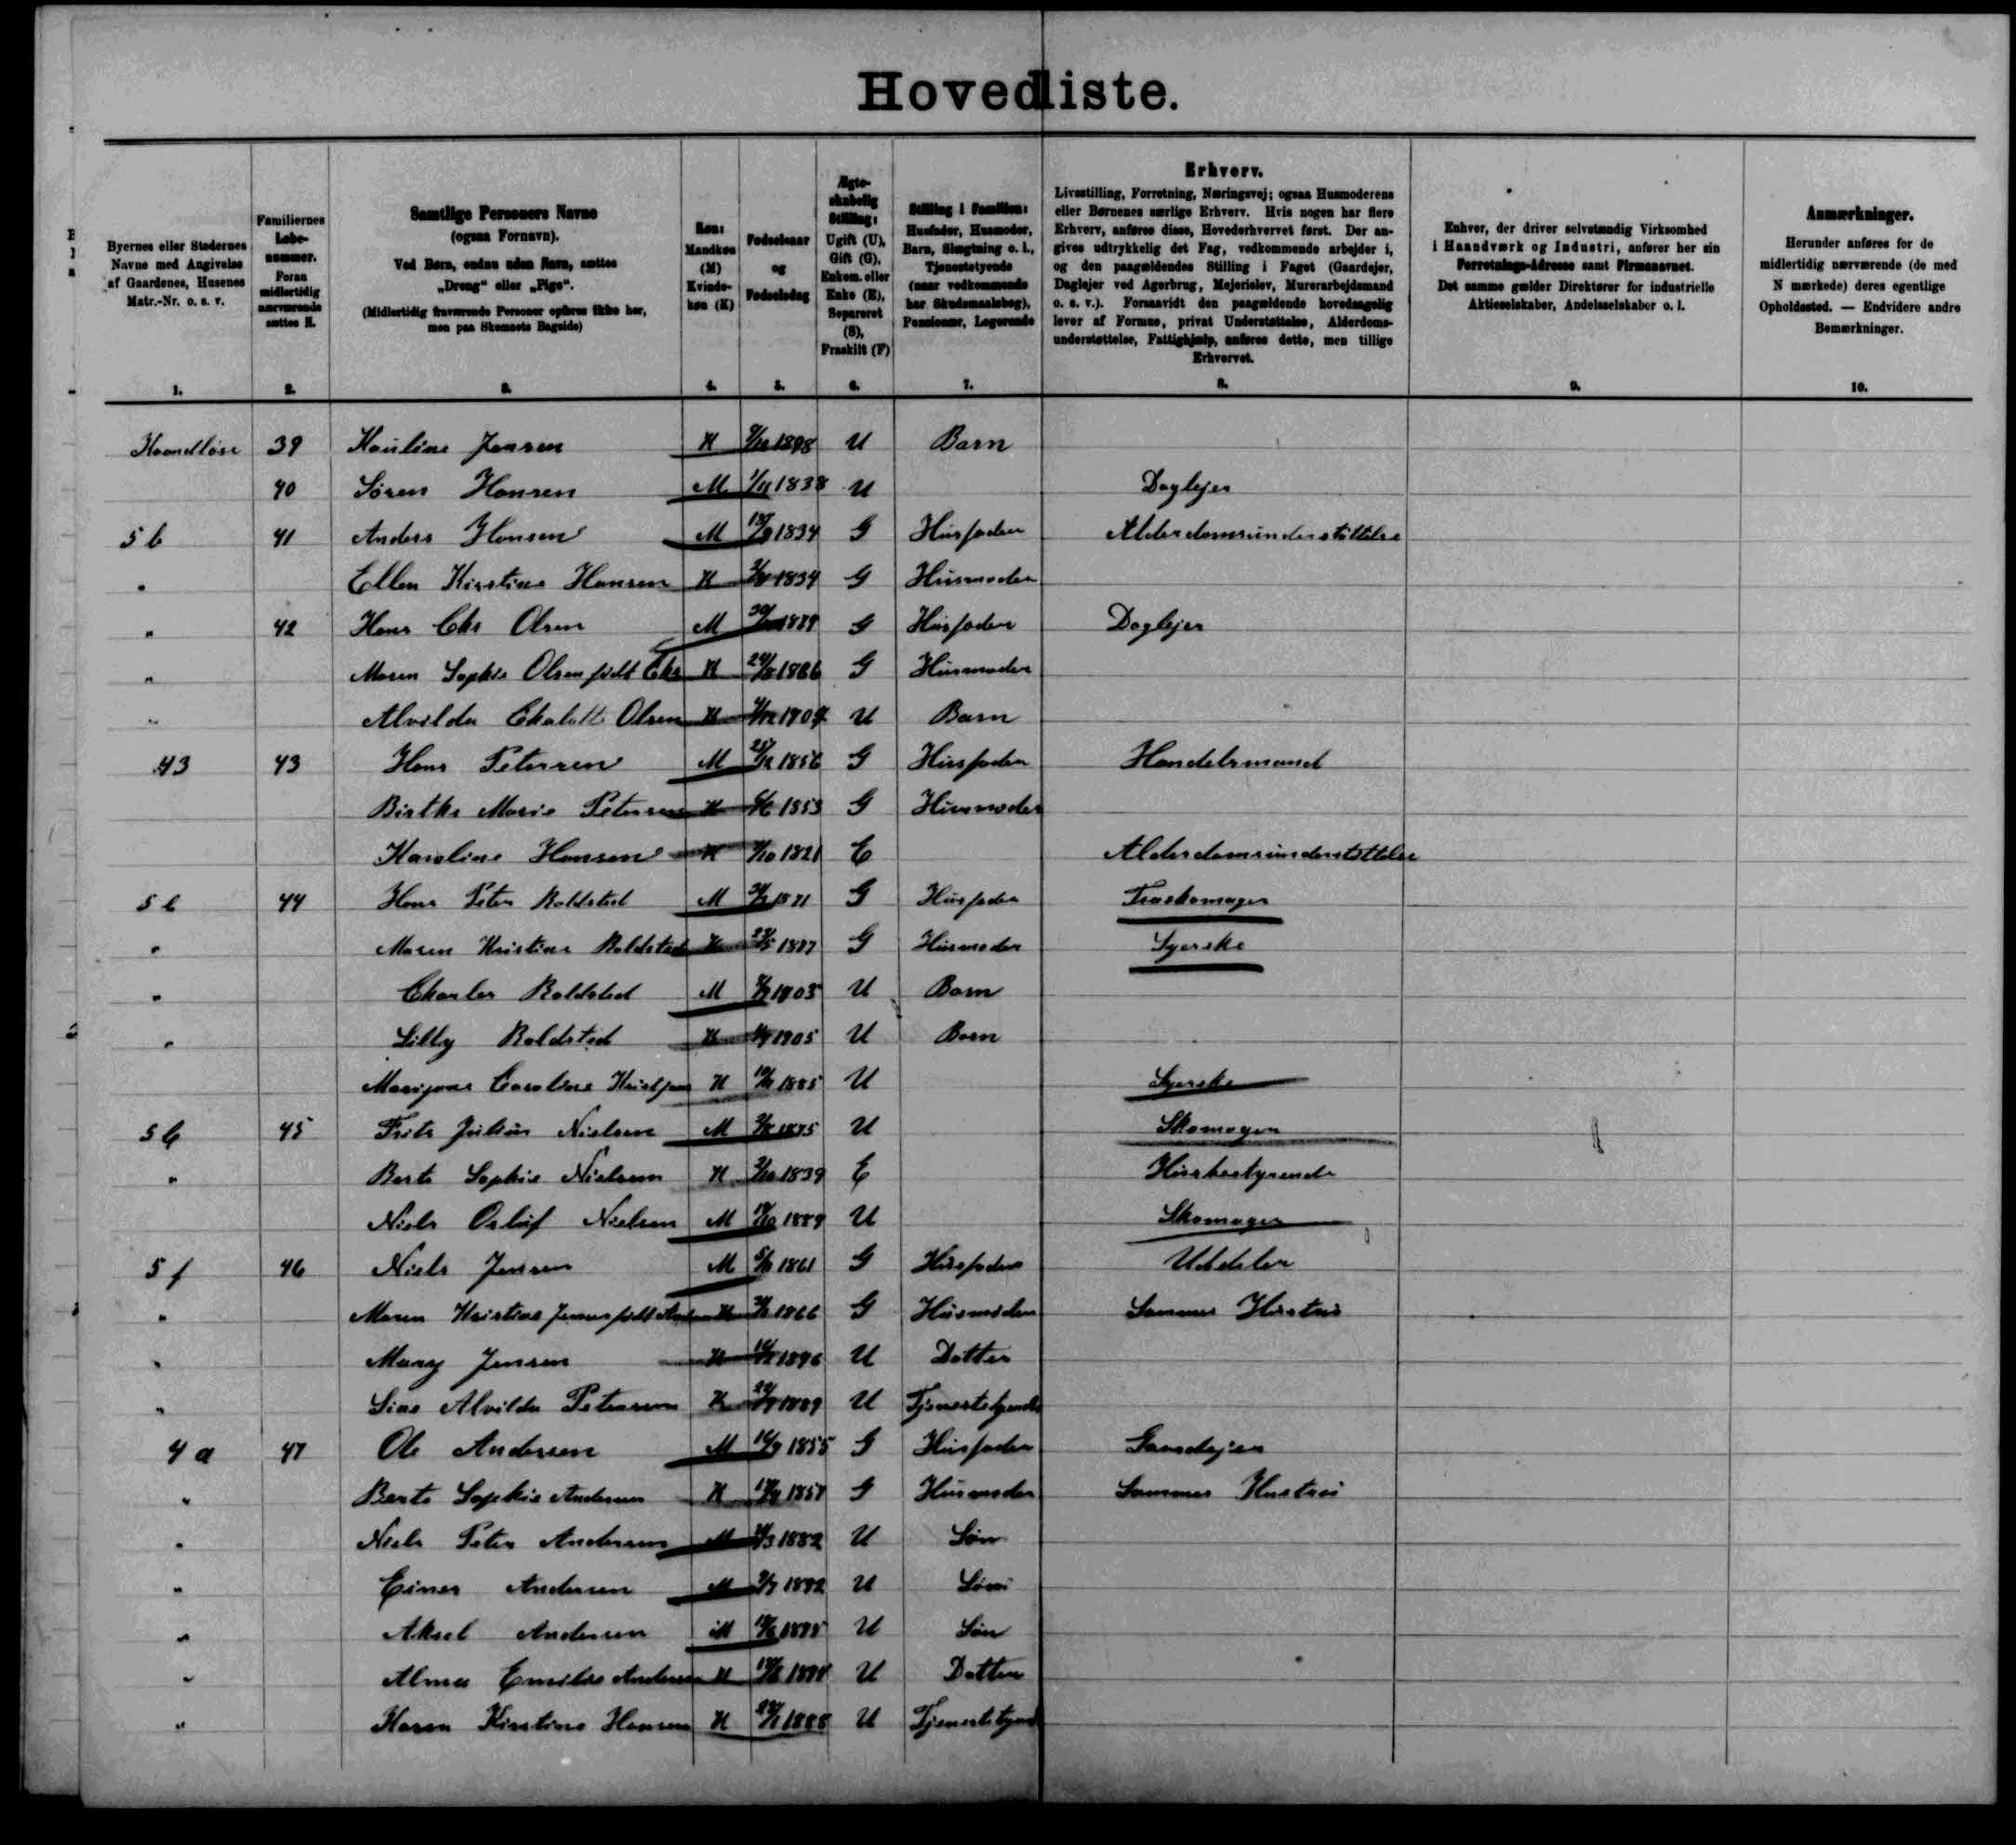 Hovedliste.
Byernes eller Stedernes Navne med Angivelse af Gaardenes, Husenes Matr.-Nr. o. s. v.
Familiernes Løbenummer. Foran midlertidig nærværende sættes N.
Samtlige Personers Navne (ogsaa Fornavn). Ved Børn, endnu uden Navn, sættes „Dreng“ eller „Pige“. (Midlertidig fraværende Personer opføres ikke her, men paa Skemaets Bagside)
Køn: Mandkøn (M) Kvindekøn (K)
Fødselsaar og Fødselsdag
Ægteskabelig Stilling: Ugift (U), Gift (G), Enkem. eller Enke (E), Separeret (S), Fraskilt (F)
Stilling i Familien: Husfader, Husmoder, Barn, Slægtning o. l., Tjenestetyende (naar vedkommende har Skudsmaalsbog), Pensionær, Logerende
Erhverv. Livsstilling, Forretning, Næringsvej; ogsaa Husmoderens eller Børnenes særlige Erhverv. Hvis nogen har flere Erhverv, anføres disse, Hovederhvervet først. Der angives udtrykkelig det Fag, vedkommende arbejder i, og den paagældendes Stilling i Faget (Gaardejer, Daglejer ved Agerbrug, Mejerielev, Murerarbejdsmand o. s. v.). Forsaavidt den paagældende hovedsagelig lever af Formue, privat Understøttelse, Alderdomsunderstøttelse, Fattighjælp, anføres dette, men tillige Erhvervet.
Enhver, der driver selvstændig Virksomhed i Haandværk og Industri, anfører her sin Forretnings-Adresse samt Firmanavnet. Det samme gælder Direktører for industrielle Aktieselskaber, Andelsselskaber o. l.
Anmærkninger. Herunder anføres for de midlertidig nærværende (de med N mærkede) deres egentlige Opholdssted. — Endvidere andre Bemærkninger.
1. 2. 3. 4. 5. 6. 7. 8. 9. 10.
39 Jensen K 1898 U Barn
40 Søren Hansen M 1/11 1838 U Daglejer
5 b 41 Anders Hansen M 1834 G Husfader Alderdomsunderstøttelse
" Ellen Kirstine Hansen K 1834 G Husmoder
" 42 Hans Chr Olsen M G Husfader Daglejer
" Maren Sophie Olsen født Chr K G Husmoder
" Alvilda Olsen K U Barn
43 43 Hans Petersen M 1856 G Husfader Handelsmand
Birthe Marie Petersen K 1853 G Husmoder
Karoline Hansen K 1821 E Alderdomsunderstøttelse
44 Hans Peter Boldsted M G Husfader Træskomager
" Maren Kristine Boldsted K G Husmoder Syerske
" Charles Boldsted M 1903 U Barn
" Lilly Boldsted K 1905 U Barn
Caroline K 1885 U Syerske
45 Frits Julius Nielsen M U Skomager
" Berte Sophie Nielsen K 1839 E Husbestyrende
Niels Nielsen M U Skomager
5 f 46 Niels Jensen M 1861 G Husfader Uddeler
" Maren Kristine Jensen født K 1866 G Husmoder Sammes Hustru
" Mary Jensen K 1896 U Datter
" Sine Alvilda Petersen K 1889 U Tjenestetyende
4 a 47 Ole Andersen M 1855 G Husfader Gaardejer
" Berte Sophie Andersen K G Husmoder Sammes Hustru
" Niels Peter Andersen M 1882 U Søn
" Einer Andersen M 1892 U Søn
" Aksel Andersen M U Søn
" Alma Emilie Andersen K U Datter
" Karen Kirstine Hansen K 1888 U Tjenestetyende